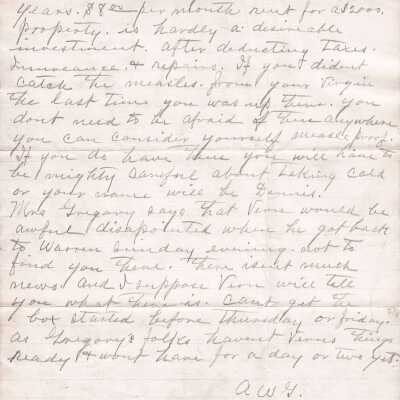 years. $8.00 per month rent for a $2000.
property. is hardly a desireable
investment. after deducting taxes.
Insureance. & repairs. If you dident
catch the measles. from your Virgin
the last time you was up there. you
dont need to be afraid of them anywhere
you can consider yourself measle proof.
If you do have them you will have to
be mighty careful about taking cold
or your name will be Dennis.
Mrs Gregory says that Vern would be
awful disapointed when he got back
to Warren sunday evening. not to
find you there. there isent much
news and I suppose Vern will tell
you what there is. cant get the
box started before thursday or friday.
as Gregory's folks havent Vernes things
ready & wont have for a day or two yet.
A.W.G.